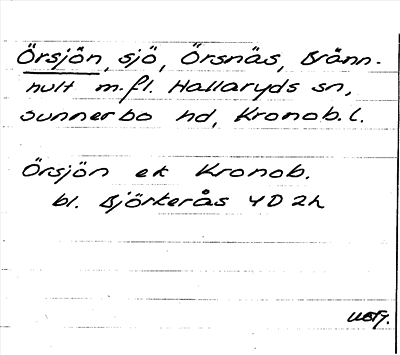 Örsjön, sjö, Örsnäs, Bränn-
hult m.fl. Hallaryds sn,
Sunnerbo hd, Kronob. l.
Örsjön ek Kronob.
bl. Björkerås 4D2h